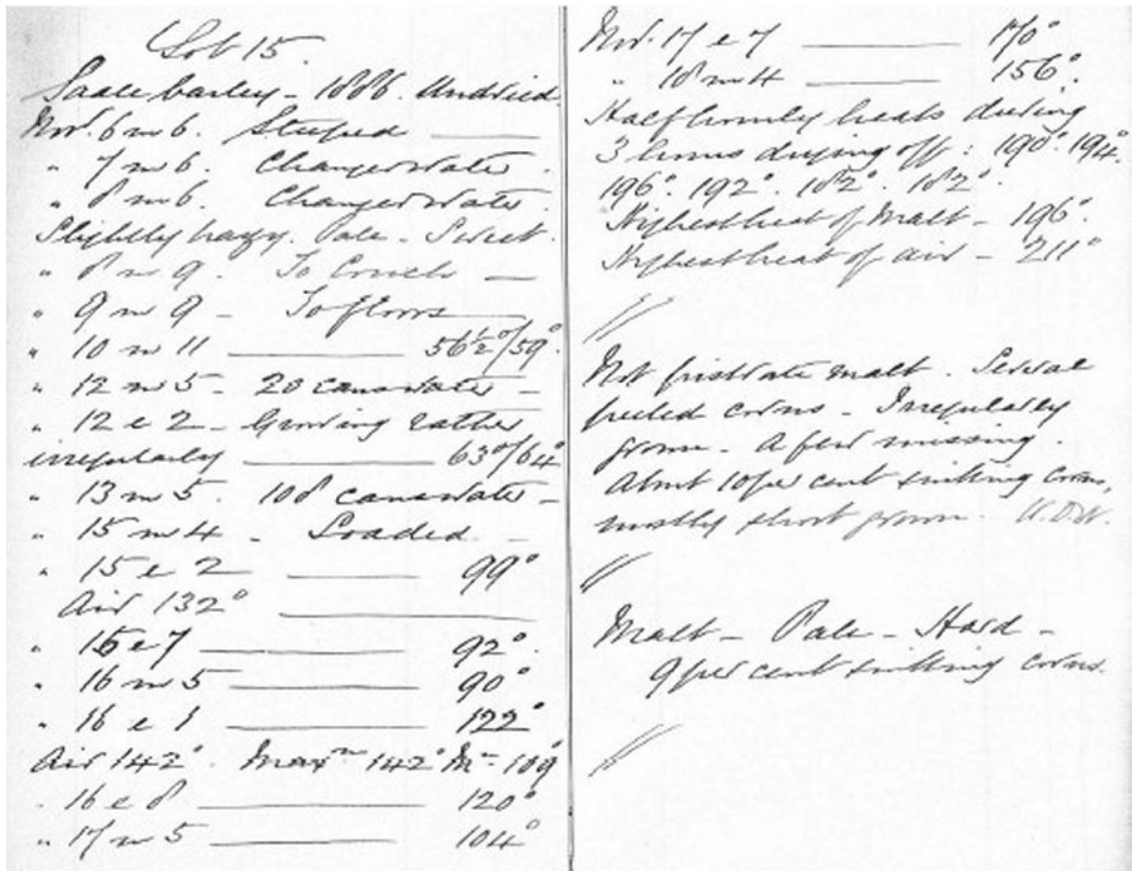 Lot 15.
Saale barley - 1886. Undried.
Nov. 6 m 6. Steeped
" 7 m 6. Changed water.
" 8 m 6. Changed water.
Slightly hazy. Pale - Sweet.
" 8 m 9. To Couch
" 9 m 9 - To floors
" 10 m 11 56½°/59°.
" 12 m 5 - 20 cans water -
" 12 e 2 - Growing rather
irregularly 63°/64°
" 13 m 5. 108 cans water -
" 15 m 4 - Loaded -
" 15 e 2 99°
Air 132°
" 15 e 7 92°.
" 16 m 5 90°
" 16 e 1 122°
Air 142°. Maxm 142° Mm 109
" 16 e 8 120°
" 17 m 5 104°
Nov. 17 e 7 170°
" 18 m 4 156°.
Half hourly heats during
3 hours drying off: 190°. 194.
196°. 192°. 182°. 182°.
Highest heat of malt - 196°.
Highest heat of air - 211°
Not first rate malt. Several
peeled corns - Irregularly
grown - A few missing.
About 10 per cent sinking corns,
mostly short grown.
Malt - Pale - Hard -
9 per cent sinking corns.